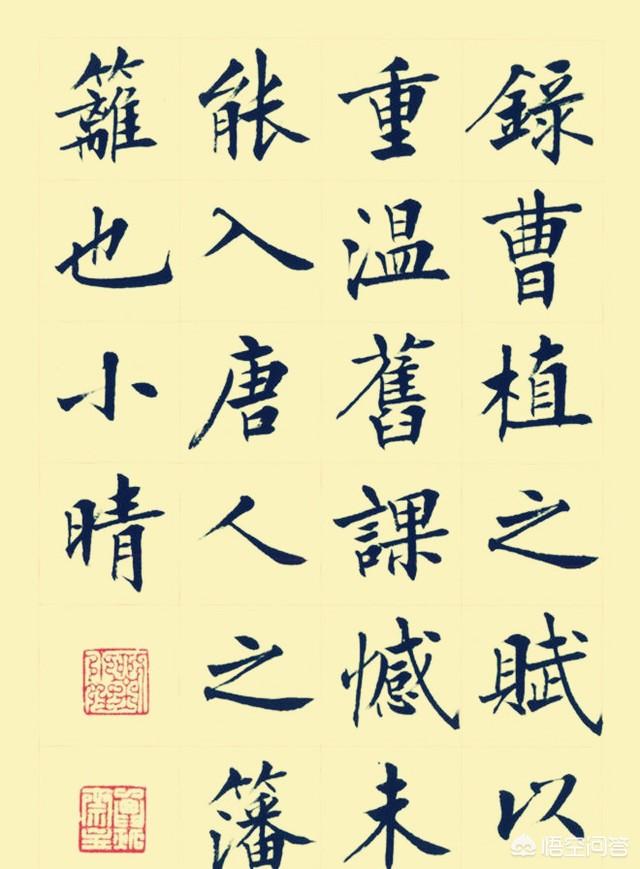 錄曹植之賦以
重溫舊課憾未
能入唐人之籓
籬也小晴
悟空问答